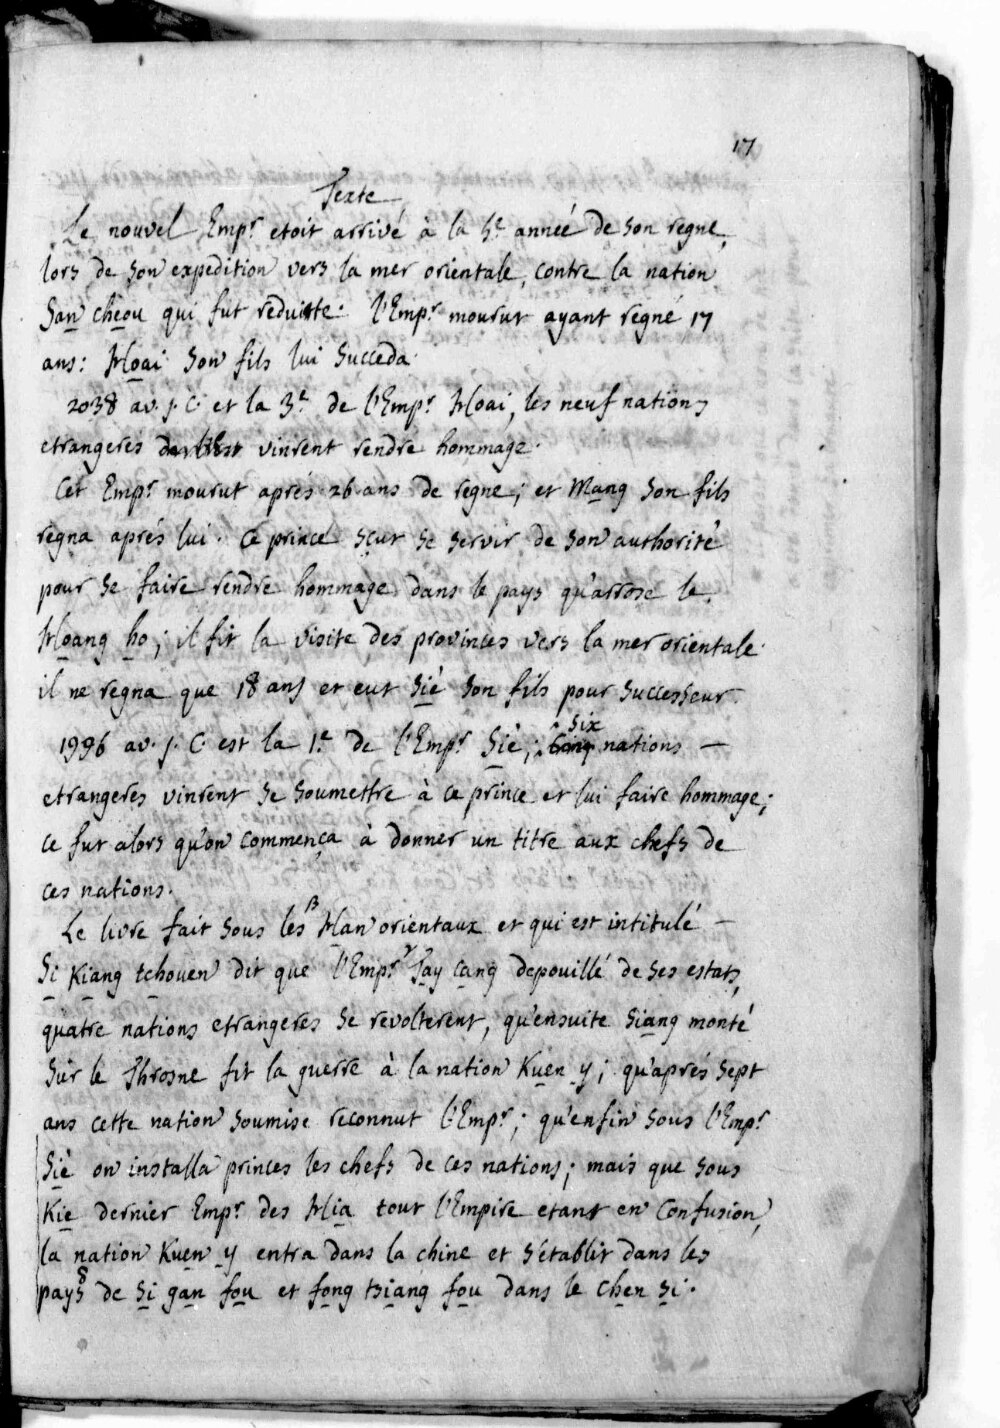 17
Texte
Le nouvel Emp.r etoit arrivé à la 5.e année de son regne,
lors de son expedition vers la mer orientale, contre la nation
San cheou qui fut reduitte. l'Emp.r mourut ayant regné 17
ans: Hoai son fils lui succeda.
2038 av. J. C. et la 3.e de l'Emp.r Hoai, les neuf nations
etrangeres vinrent rendre hommage.
Cet Emp.r mourut aprés 26 ans de regne; et Mang son fils
regna aprés lui. Ce prince sçut se servir de son authorité
pour se faire rendre hommage dans le pays qu'arrose le
Hoang ho; il fit la visite des provinces vers la mer orientale.
il ne regna que 18 ans et eut Siè son fils pour successeur.
1996 av. J. C. est la 1.e de l'Emp.r Siè; six nations —
etrangeres vinrent se soumettre à ce prince et lui faire hommage;
ce fut alors qu'on commença à donner un titre aux chefs de
ces nations.
Le livre fait sous les β Han orientaux et qui est intitulé —
Si Kiang tchouen dit que l'Emp.r γ Tay cang depouillé de ses estats,
quatre nations etrangeres se revolterent, qu'ensuite Siang monté
sur le Throsne fit la guerre à la nation Kuen y; qu'aprés sept
ans cette nation soumise reconnut l'Emp.r; qu'enfin sous l'Emp.r
Siè on installa princes les chefs de ces nations; mais que sous
Kie dernier Emp.r des Hia tout l'Empire etant en confusion,
la nation Kuen y entra dans la chine et s'établit dans les
pays δ de Si gan fou et fong tsiang fou dans le chen si.